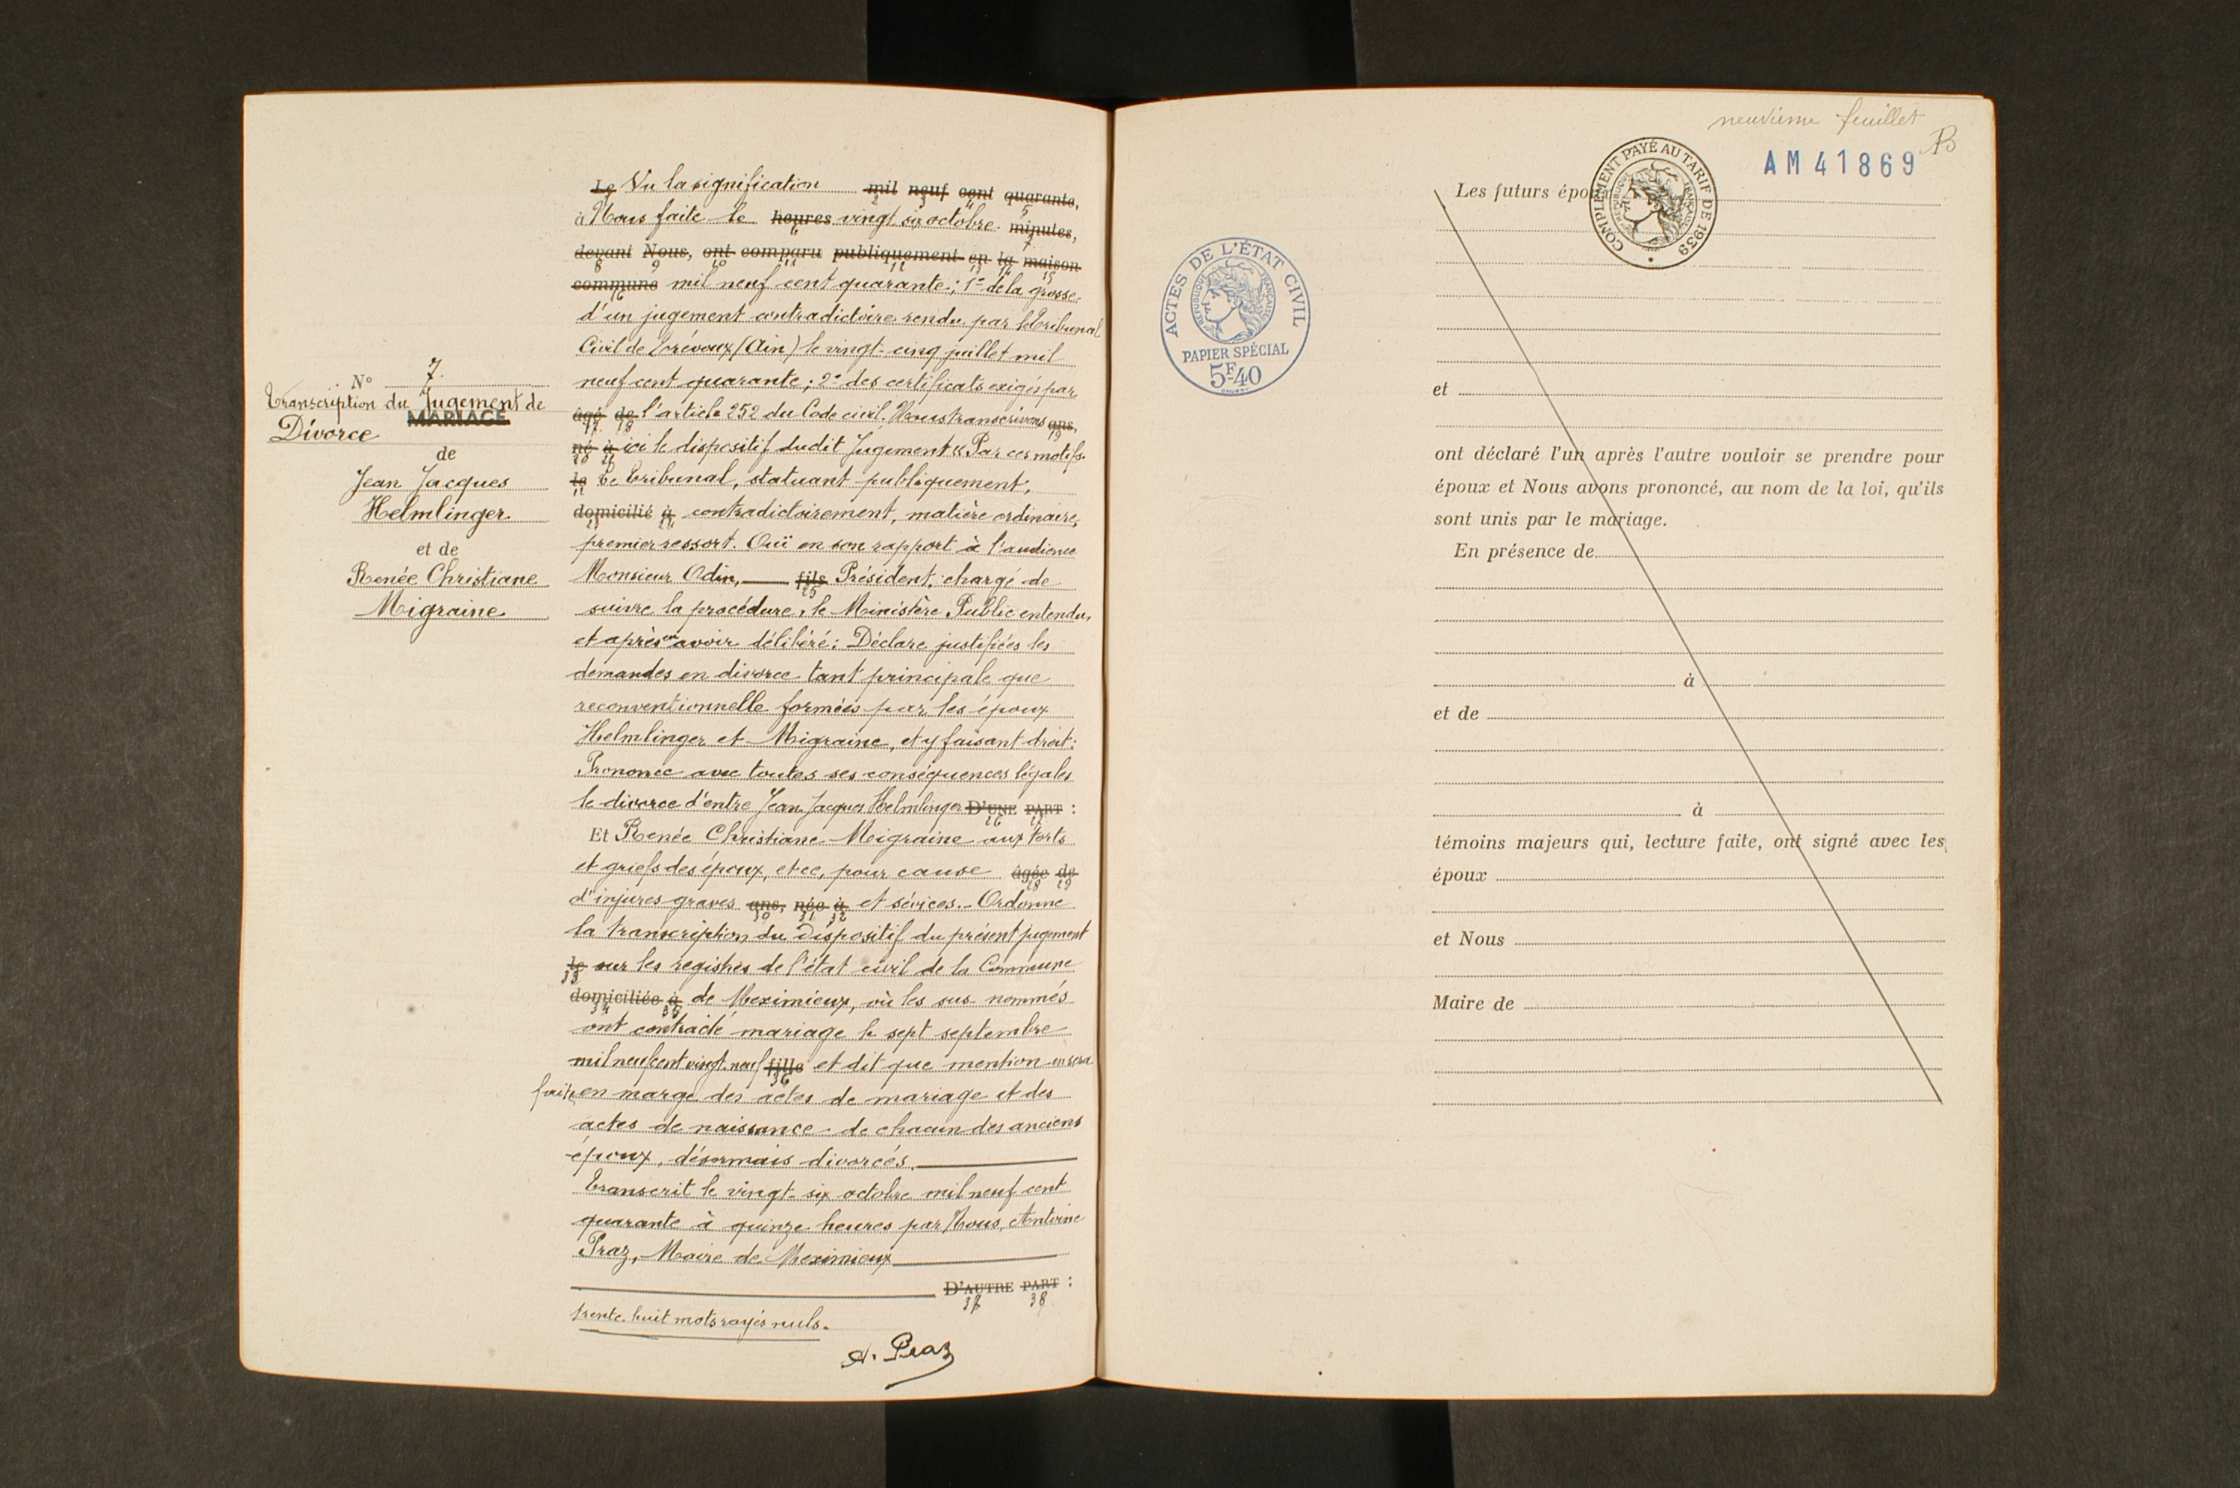 N° 7.
Transcription du Jugement de
MARIAGE
Divorce
de
Jean Jacques
Helmlinger
et de
Renée Christiane
Migraine
Le Vu la signification mil neuf cent quarante,
2 3 4 5
à Nous faite le heures vingt six octobre minutes,
6 7
devant Nous, ont comparu publiquement en la maison
8 9 10 11 12 13 14 15
commune mil neuf cent quarante; 1° de la grosse
16
d'un jugement contradictoire rendu par le Tribunal
Civil de Trévoux (Ain) le vingt-cinq juillet mil
neuf cent quarante; 2° des certificats exigés par
âgé de l'article 252 du Code civil. Nous transcrivons ans,
17 18 19
né à ici le dispositif dudit Jugement « Par ces motifs
20 21
le Le Tribunal, statuant publiquement,
22
domicilié à contradictoirement, matière ordinaire,
23 24
premier ressort. Ouï en son rapport à l'audience
Monsieur Odin, fils Président, chargé de
25
suivre la procédure, le Ministère Public entendu,
et après en avoir délibéré: Déclare justifiées les
demandes en divorce tant principale que
reconventionnelle formées par les époux
Helmlinger et Migraine, et y faisant droit:
Prononce avec toutes ses conséquences légales
le divorce d'entre Jean Jacques Helmlinger D'UNE PART :
26 27
Et Renée Christiane Migraine aux torts
et griefs des époux, et ce, pour cause âgée de
28 29
d'injures graves ans, née à et sévices. - Ordonne
30 31 32
la transcription du dispositif du présent jugement
le sur les registres de l'état civil de la Commune
33
domiciliée à de Meximieux, où les sus nommés
34 35
ont contracté mariage le sept septembre
mil neuf cent vingt-neuf fille et dit que mention en sera
36
faite en marge des actes de mariage et des
actes de naissance de chacun des anciens
époux, désormais divorcés.
Transcrit le vingt-six octobre mil neuf cent
quarante à quinze heures par Nous, Antoine
Praz, Maire de Meximieux
D'AUTRE PART :
37 38
trente-huit mots rayés nuls.
A. Praz
neuvième feuillet
AM 41869
COMPLÉMENT PAYÉ AU TARIF DE 1939
RÉPUBLIQUE FRANÇAISE
ACTES DE L'ÉTAT CIVIL
RÉPUBLIQUE FRANÇAISE
PAPIER SPÉCIAL
5F40
Les futurs épou
et
ont déclaré l'un après l'autre vouloir se prendre pour
époux et Nous avons prononcé, au nom de la loi, qu'ils
sont unis par le mariage.
En présence de
à
et de
à
témoins majeurs qui, lecture faite, ont signé avec les
époux
et Nous
Maire de